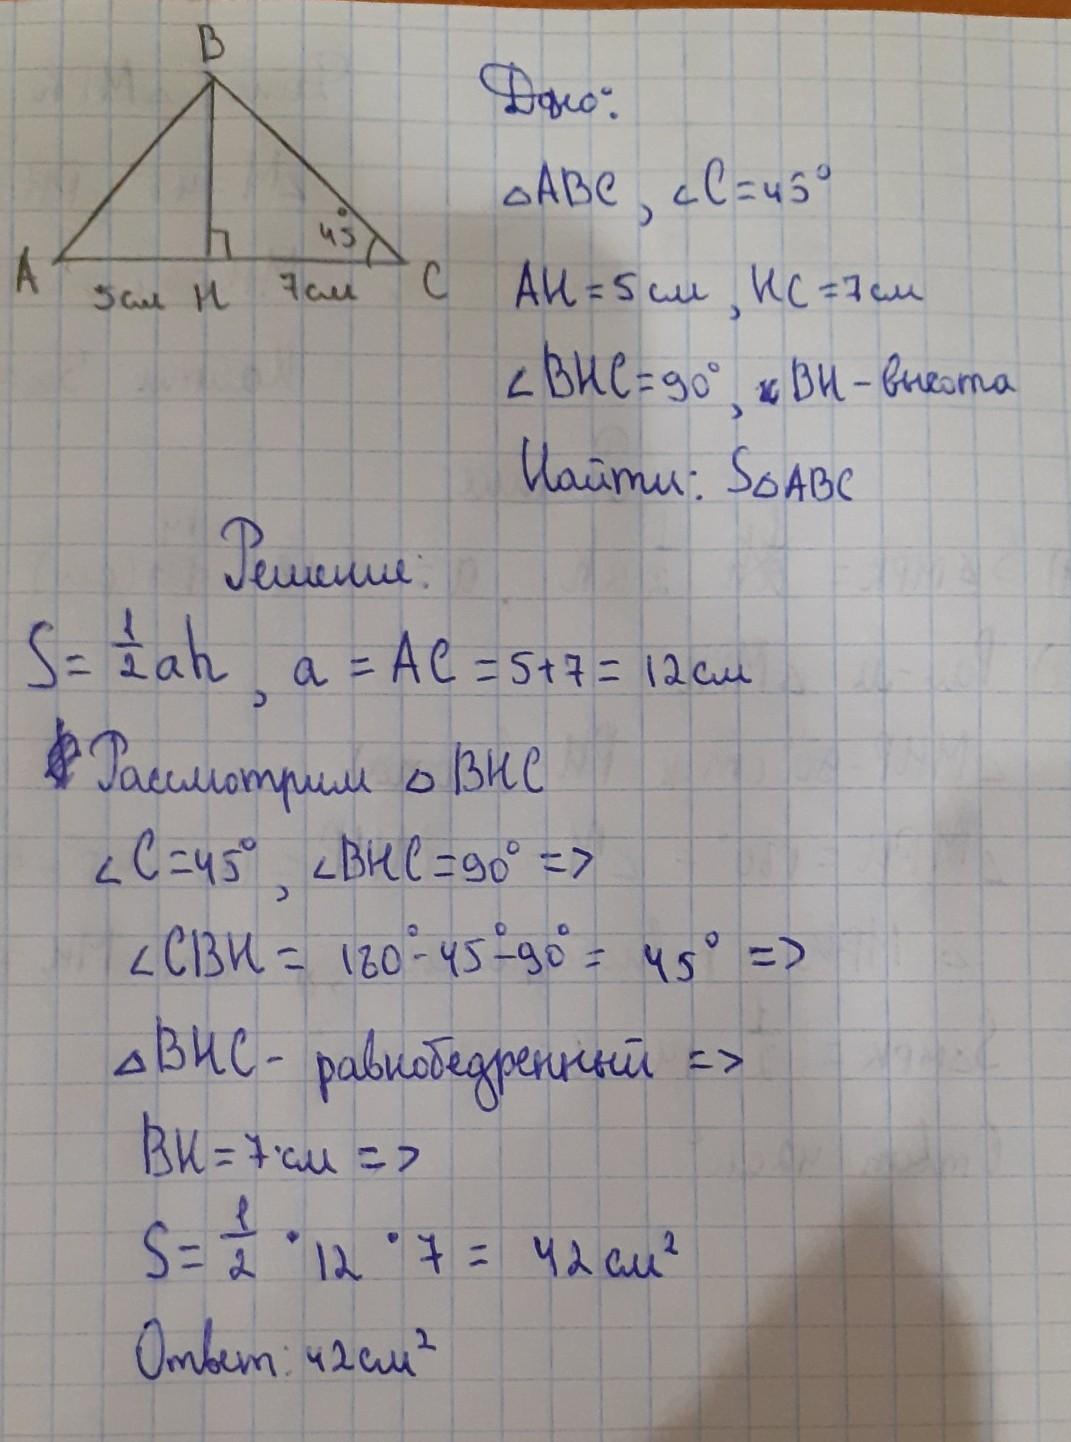 B
Дано:
△ABC, ∠C=45°
45°
A 5см H 7см C
AH=5см, HC=7см
∠BHC=90°, BH-высота
Найти: S△ABC
Решение:
S=1/2ah, a=AC=5+7=12см
Рассмотрим △BHC
∠C=45°, ∠BHC=90° =>
∠CBH= 180°-45°-90°= 45° =>
△BHC- равнобедренный =>
BH=7см =>
S=1/2·12·7= 42см²
Ответ: 42см²